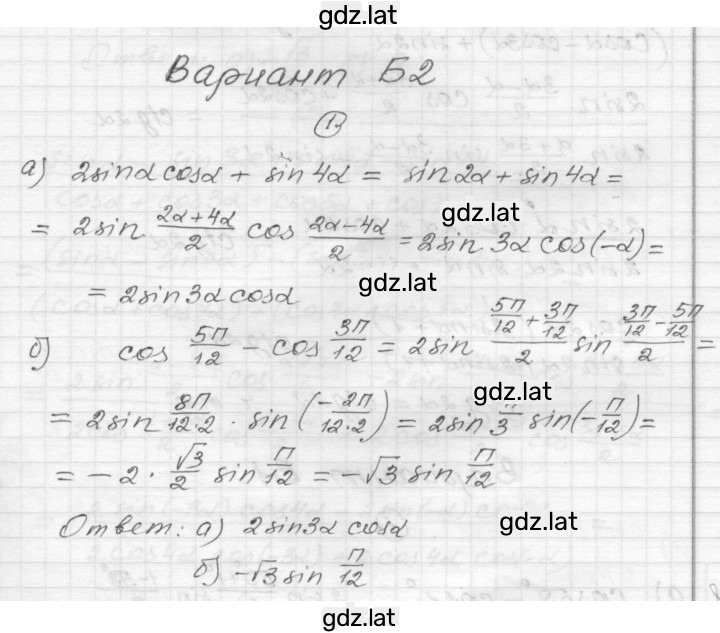 gdz.lat
Вариант Б2
①
а) 2sinα cosα + sin 4α = sin 2α + sin 4α =
gdz.lat
= 2sin (2α+4α)/2 cos (2α-4α)/2 = 2sin 3α cos(-α) =
gdz.lat
= 2sin3α cosα
б) cos 5π/12 - cos 3π/12 = 2sin (5π/12 + 3π/12)/2 sin (3π/12 - 5π/12)/2 =
gdz.lat
= 2sin 8π/(12·2) · sin (-2π/(12·2)) = 2sin π/3 sin(-π/12) =
= -2 · √3/2 sin π/12 = -√3 sin π/12
Ответ: а) 2sin3α cosα
gdz.lat
б) -√3 sin π/12
gdz.lat